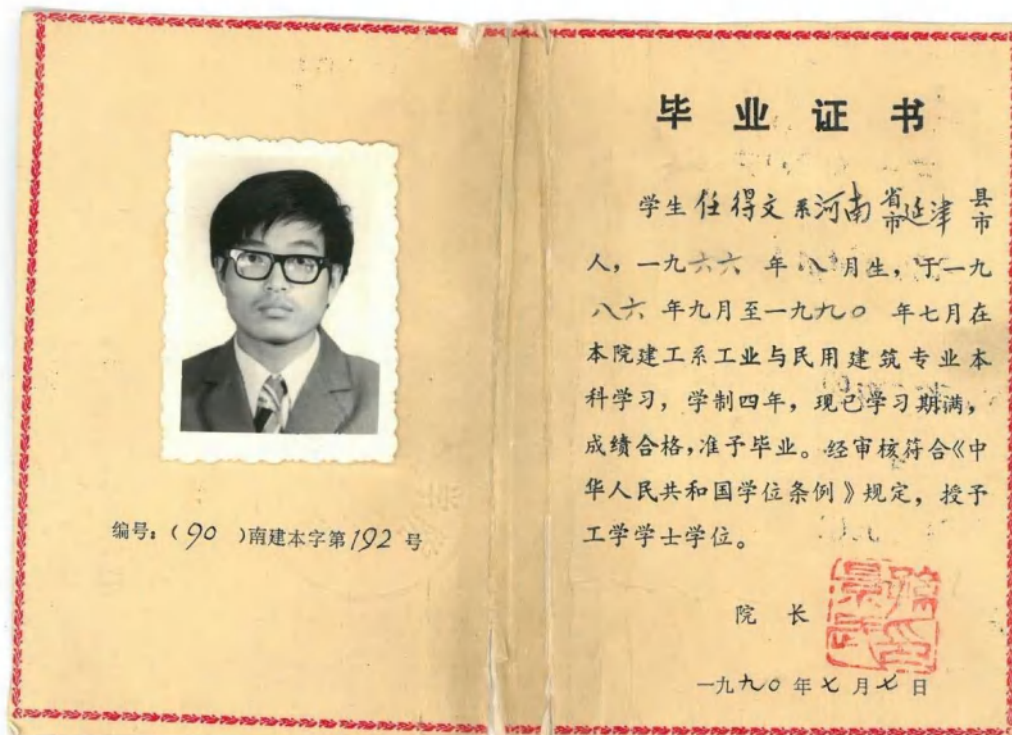 编号：（90）南建本字第192号
毕业证书
学生任得文系河南省市延津县市
人，一九六六年八月生，于一九
八六年九月至一九九〇年七月在
本院建工系工业与民用建筑专业本
科学习，学制四年，现已学习期满，
成绩合格，准予毕业。经审核符合《中
华人民共和国学位条例》规定，授予
工学学士学位。
院长
一九九〇年七月七日